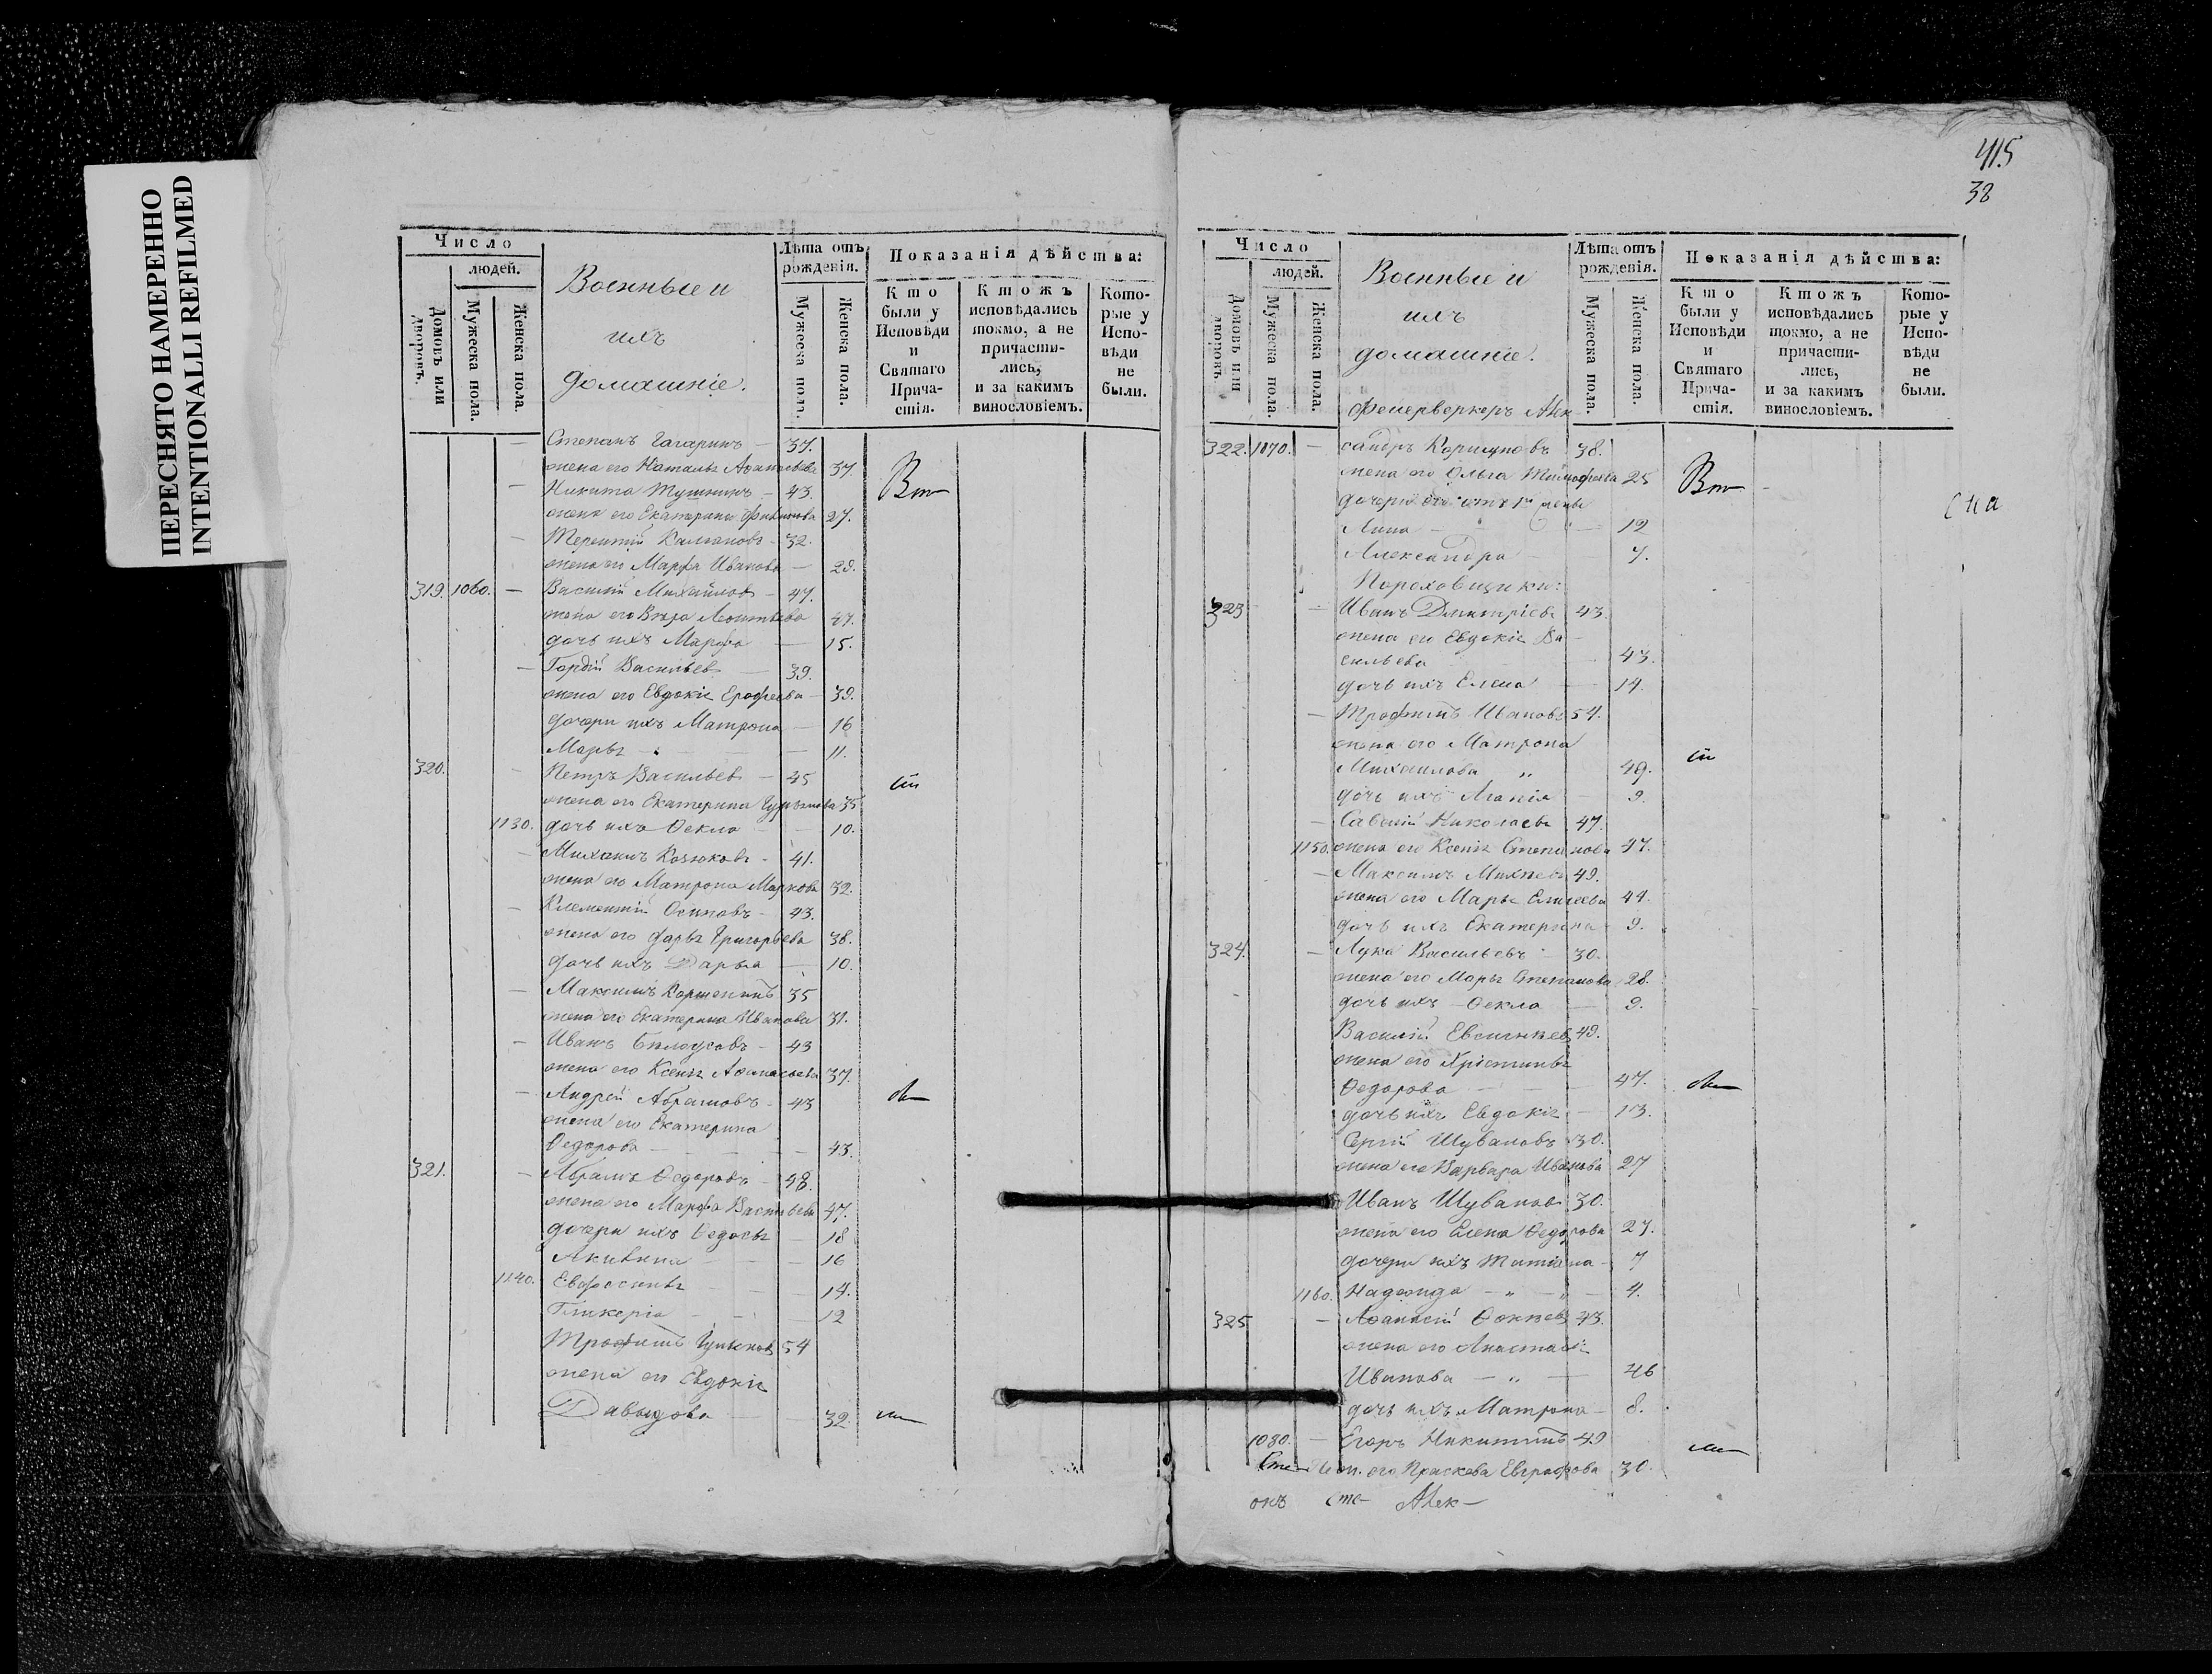 ПЕРЕСНЯТО НАМЕРЕННО
INTENTIONALLI REFILMED
Число
людей.
Домовъ или дворовъ.
Мужеска пола.
Женска пола.
Военные и
ихъ
домашніе.
Лѣта отъ
рожденія.
Мужеска пола.
Женска пола.
Показанія дѣйства:
Кто
были у
Исповѣди
и
Святаго
Прича-
стія.
Ктожъ
исповѣдались
токмо, а не
причасти-
лись,
и за какимъ
винословіемъ.
Кото-
рые у
Испо-
вѣди
не
были.
— Степанъ Гагаринъ — 37.
жена его Наталья 37.
— Никита Тушкинъ — 43.
жена его Екатерина 27.
— Терентій 32.
жена его Марфа Иванова — 29.
319. 1060. — Василій Михайловъ — 47.
жена его Вѣра Леонтьева 47.
дочь ихъ Марфа — 15.
— Гордій Васильевъ — 39.
жена его Евдокія Ерофеева — 39.
дочери ихъ Матрона — 16
Марья — 11.
320. — Петръ Васильевъ — 45
жена его Екатерина 35
1130. дочь ихъ Ѳекла — 10.
— Михаилъ Козюковъ — 41.
жена его Матрона Маркова 32.
— Клементій Осиповъ — 43.
жена его Дарья Григорьева 38.
дочь ихъ Дарья — 10.
— Максимъ 35
жена его Екатерина Иванова 31.
— Иванъ Бѣлоусовъ — 43
жена его Ксенія Аѳанасьева 37.
— Андрей Абрамовъ — 43
жена его Екатерина
Ѳедорова — 43.
321. — Абрамъ Ѳедоровъ — 48.
жена его Марфа Васильева 47.
дочери ихъ Ѳедосья — 18
Акилина — 16
1140. Евфросинья — 14.
Гликерія — 12
Трофимъ 54
жена его Евдокія
Давыдова — 32.
415
38
Число
людей.
Домовъ или дворовъ.
Мужеска пола.
Женска пола.
Военные и
ихъ
домашніе.
Лѣта отъ
рожденія.
Мужеска пола.
Женска пола.
Показанія дѣйства:
Кто
были у
Исповѣди
и
Святаго
Прича-
стія.
Ктожъ
исповѣдались
токмо, а не
причасти-
лись,
и за какимъ
винословіемъ.
Кото-
рые у
Испо-
вѣди
не
были.
Фейерверкеръ Алек
322. 1070. — сандръ 38.
жена его Ольга Тимофеева 25
дочери его отъ 1й жены
Анна — 12
Александра — 7.
Пороховщики:
323 — Иванъ Дмитріевъ 43.
жена его Евдокія Ва
сильева — 43.
дочь ихъ Елена — 14.
— Трофимъ Ивановъ 54.
жена его Матрона
Михаилова „ 49.
дочь ихъ Агапія — 9.
— Савелій Николаевъ 47.
1150. жена его Ксенія Степанова 47.
— Максимъ Михѣевъ 49.
жена его Марья Елисеева 44.
дочь ихъ Екатерина 9.
324. — Лука Васильевъ — 30.
жена его Марья Степанова 28.
дочь ихъ Ѳекла — 9.
Василій Евсигнѣевъ 49.
жена его Христинья
Ѳедорова — 47.
дочь ихъ Евдокія — 13.
Сергій Шувановъ 30.
жена его Варвара Иванова 27
Иванъ Шувановъ 30.
жена его Елена Ѳедорова 27.
дочери ихъ Татіяна — 7
1160. Надежда — „ — „ — 4.
325 — Аѳанасій Ѳокѣевъ 43.
жена его Анастасія
Иванова — „ — 46
дочь ихъ Матрона — 8.
1080. — Егоръ Никитинъ 49
жен. его Праскева Евграфова 30.
Сте- Алек-